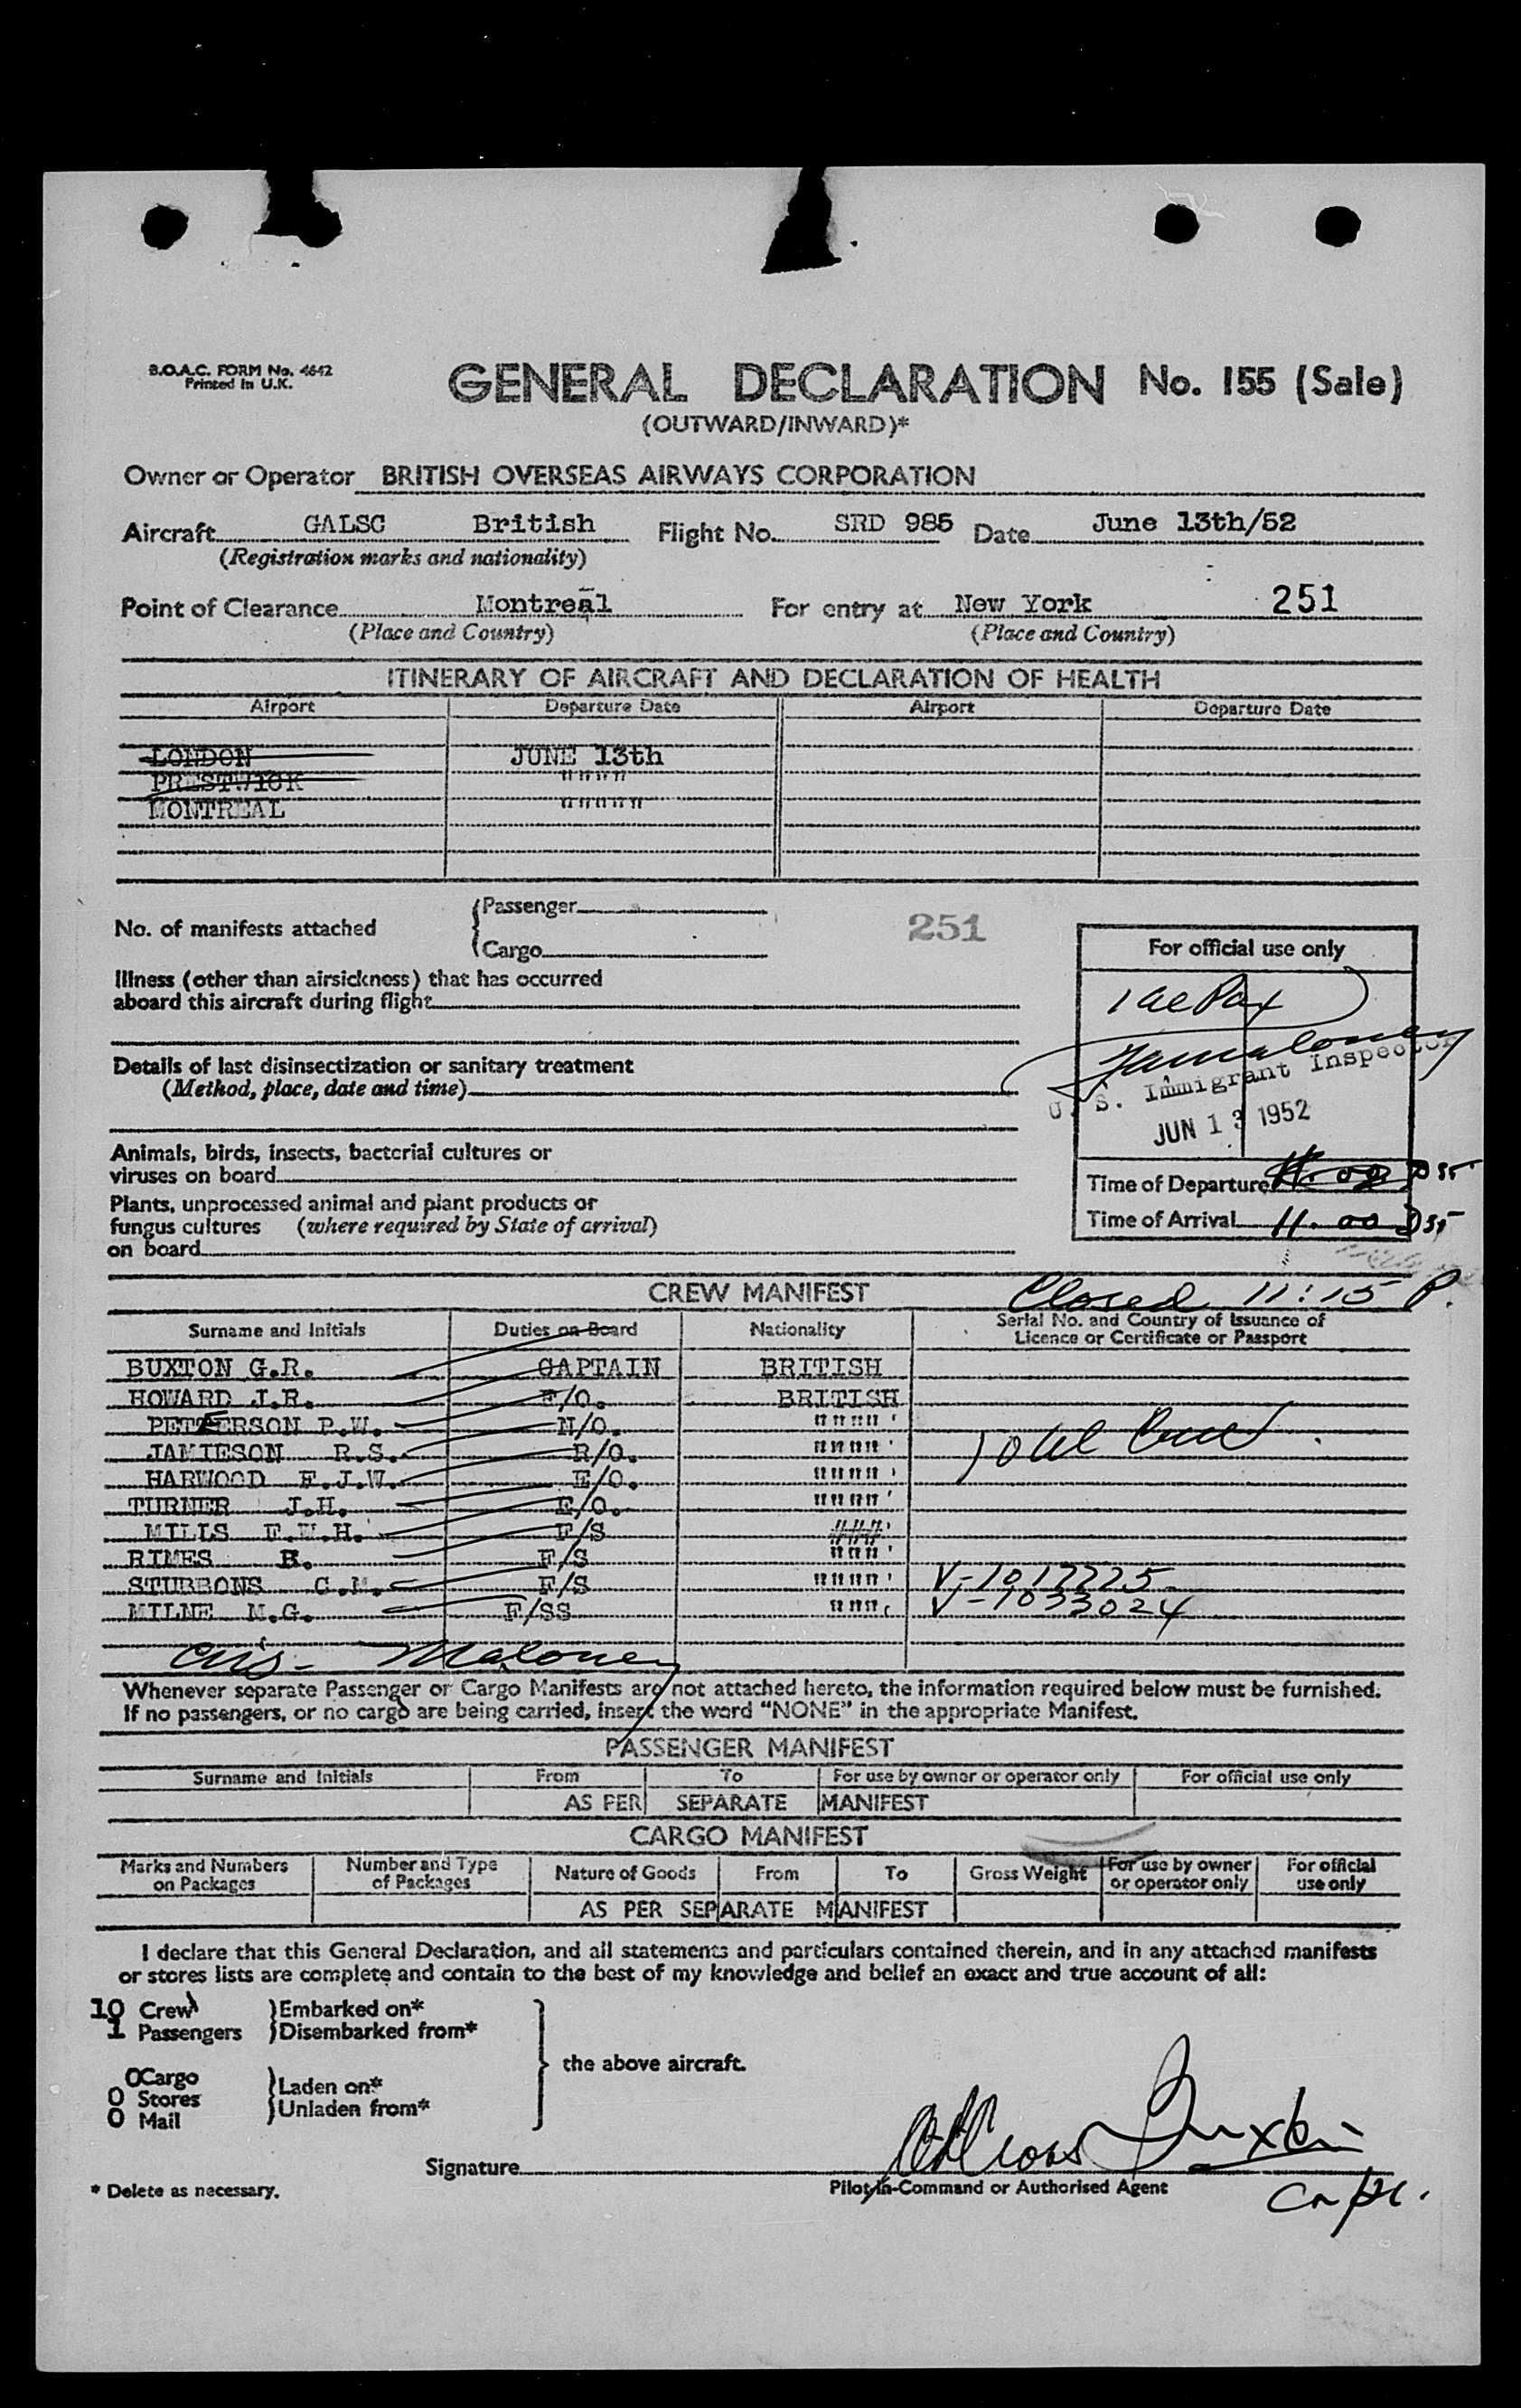 B.O.A.C. FORM No. 4642
Printed in U.K.
GENERAL DECLARATION No. 155 (Sale)
(OUTWARD/INWARD)*
Owner or Operator BRITISH OVERSEAS AIRWAYS CORPORATION
Aircraft GALSC British Flight No. SRD 985 Date June 13th/52
(Registration marks and nationality)
Point of Clearance Montreal For entry at New York 251
(Place and Country) (Place and Country)
ITINERARY OF AIRCRAFT AND DECLARATION OF HEALTH
Airport Departure Date Airport Departure Date
LONDON JUNE 13th
PRESTWICK """"
MONTREAL """""
No. of manifests attached
Passenger
Cargo
251
For official use only
Illness (other than airsickness) that has occurred
aboard this aircraft during flight
Details of last disinsectization or sanitary treatment
(Method, place, date and time)
U. S. Immigrant Inspector
JUN 13 1952
Animals, birds, insects, bacterial cultures or
viruses on board
Time of Departure
Plants, unprocessed animal and plant products or
fungus cultures (where required by State of arrival)
on board
Time of Arrival 11.00
CREW MANIFEST Closed 11:15 P.
Surname and Initials Duties on Board Nationality Serial No. and Country of Issuance of
Licence or Certificate or Passport
BUXTON G.R. CAPTAIN BRITISH
HOWARD J.R. F/O. BRITISH
PETTERSON P.W. N/O. """"
JAMIESON R.S. R/O. """"
HARWOOD F.J.W. E/O. """"
TURNER J.H. E/O. """"
MILLS F.W.H. F/S
RIMES R. F/S """"
STUBBONS C.M. F/S """"" V-1017225
MILNE M.G. F/SS """" V-1033024
Maloney
Whenever separate Passenger or Cargo Manifests are not attached hereto, the information required below must be furnished.
If no passengers, or no cargo are being carried, insert the word “NONE” in the appropriate Manifest.
PASSENGER MANIFEST
Surname and Initials From To For use by owner or operator only For official use only
AS PER SEPARATE MANIFEST
CARGO MANIFEST
Marks and Numbers on Packages Number and Type of Packages Nature of Goods From To Gross Weight For use by owner or operator only For official use only
AS PER SEPARATE MANIFEST
I declare that this General Declaration, and all statements and particulars contained therein, and in any attached manifests
or stores lists are complete and contain to the best of my knowledge and belief an exact and true account of all:
10 Crew Embarked on*
1 Passengers Disembarked from*
the above aircraft.
0 Cargo Laden on*
0 Stores Unladen from*
0 Mail
Signature
Pilot-in-Command or Authorised Agent
* Delete as necessary.
Capt.